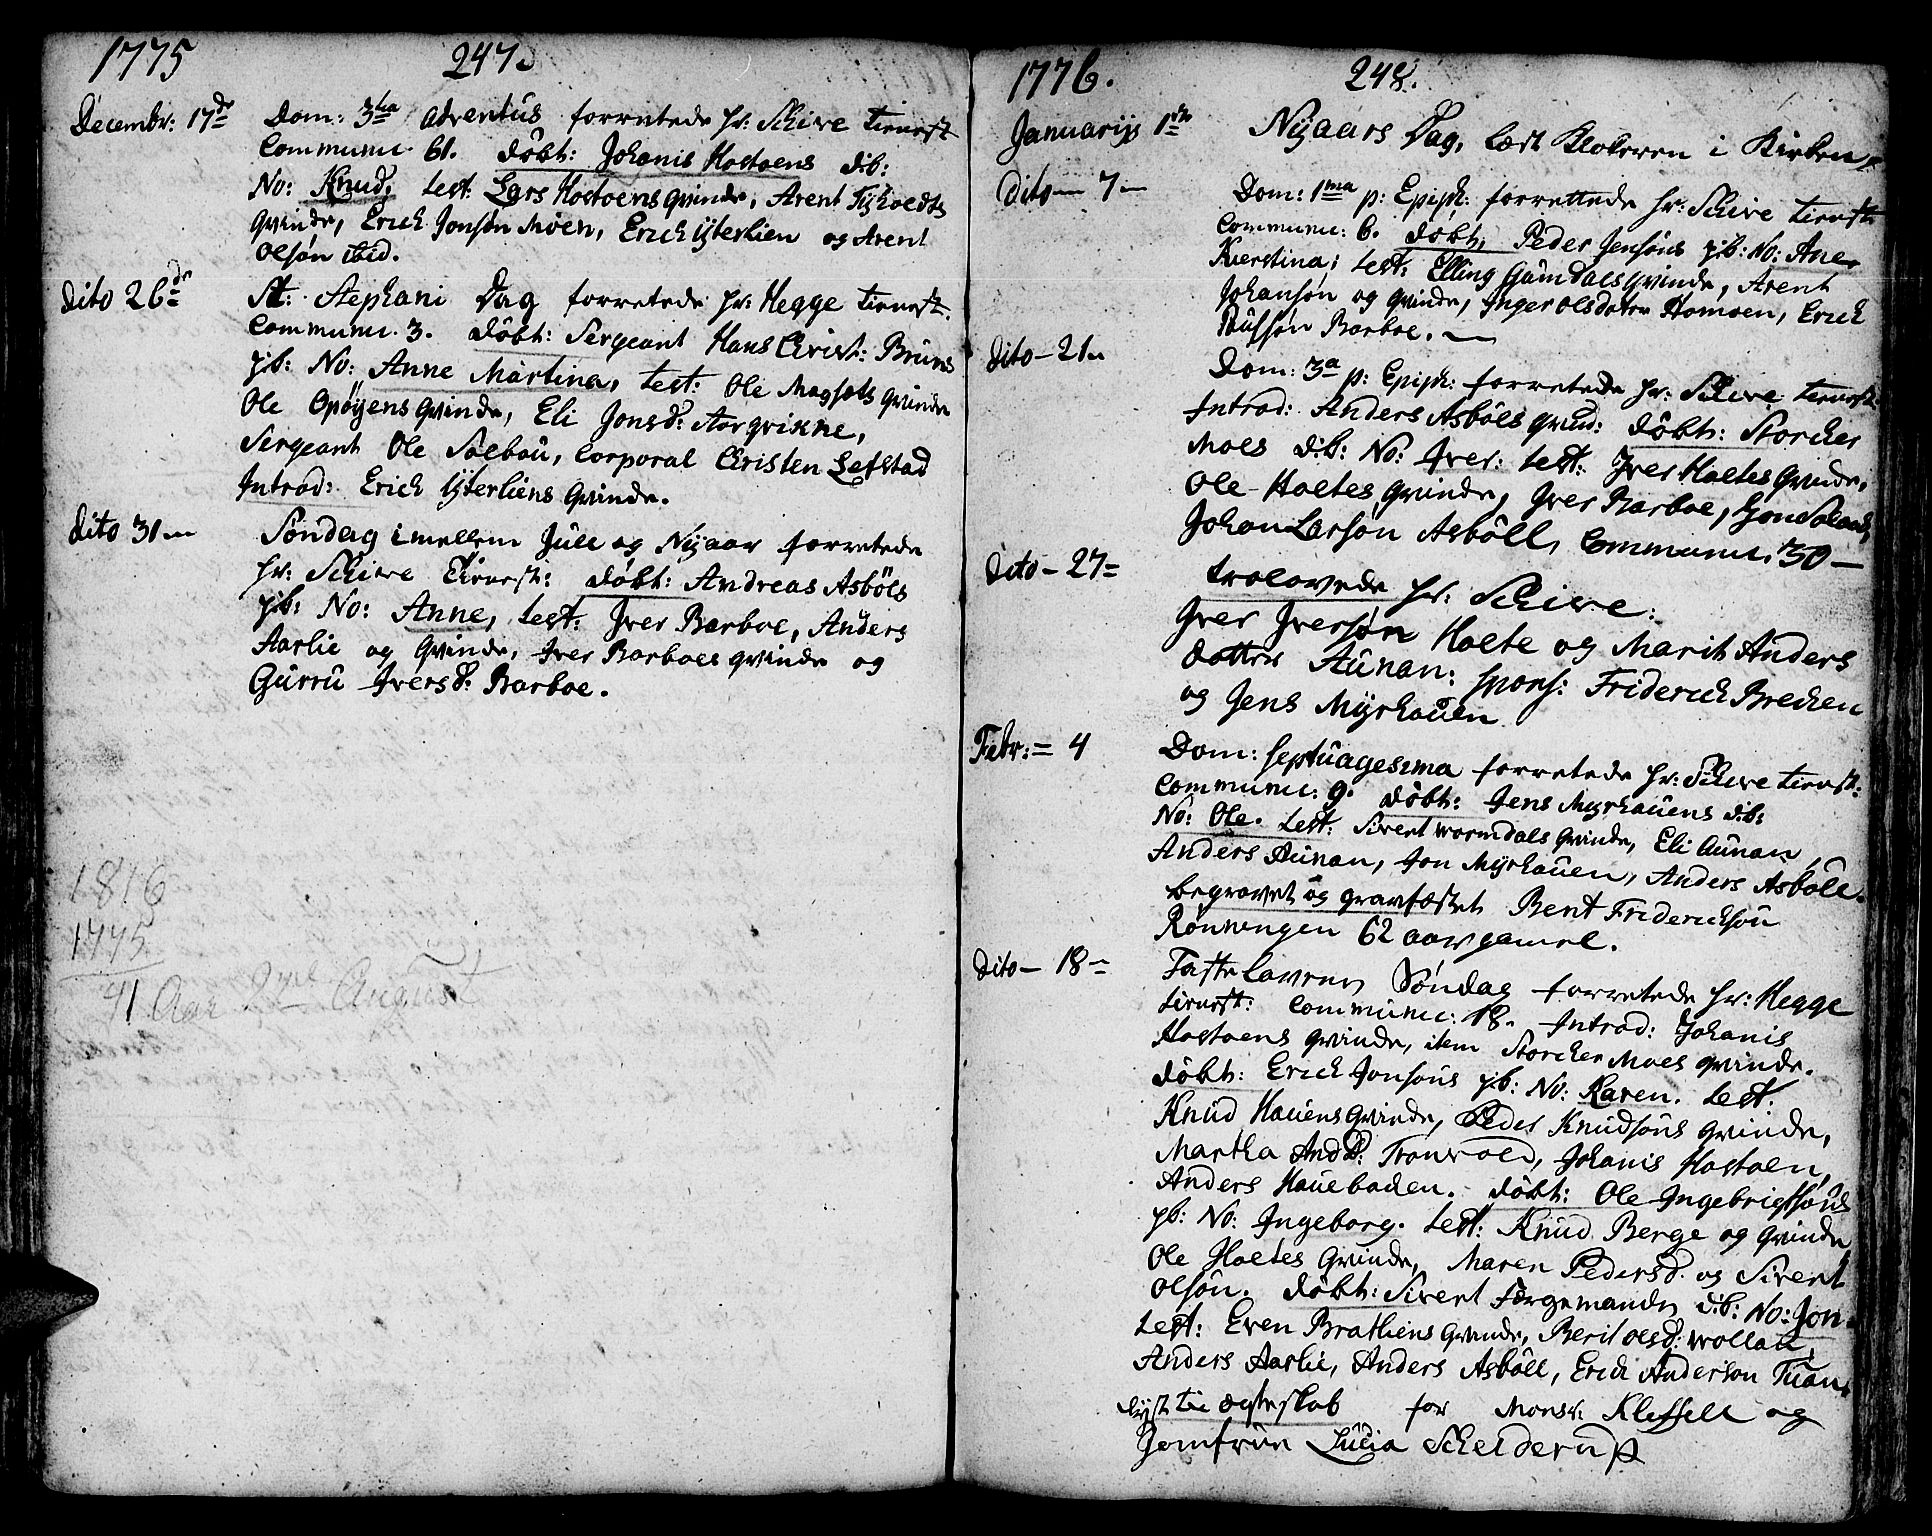 1775 247.
Decembr: 17de Dom: 3tia Adventus forretede hr: Schive tienest
Commune 61. døbt: Johanis Hostoens d:b:
No: Knud, test: Lars Hostoens qvinde, Arent
qvinde, Erich Jonsøn Moen, Erich Ytterlien og Arent
Olsøn ibid.
Dito 26de St: Stephani Dag forretede hr: Hegge tienest.
Commune. 3. døbt: Sergeant Hans Christ: Bruns
p:b: No: Anne Martina, test: Ole Magsets qvinde
Ole Opøyens qvinde, Eli Jonsd: Aarqvikne,
Sergeant Ole Solbou, Corporal Christen Lefstad
Introd: Erich Ytterliens qvinde.
Dito 31 Søndag imellem Jule og Nyaar forretede
hr: Schive tienest: døbt: Andreas Asbøls
p:b: No: Anne, test: Iver Barboe, Anders
Aarlie og qvinde, Iver Barboes qvinde og
Gurru Iversd: Barboe.
1816
1775
41 Aar 2 August
1776. 248.
Januarij 1ste Nyaars Dag, læst Klokeren i Kirken
Dito - 7 - Dom: 1ma p: Epiph: forrettede hr: Schive tienst:
Commune: 6. døbt, Peder Jensøns p:b: No: Ane
Kierstina; test: Elling Gamdals qvinde, Arent
Johansøn og qvinde, Inger Olsdoter Homoen, Erich
Barboe.
Dito - 21 Dom: 3a p: Epiph: forretede hr: Schive tienest
Introd: Anders Asbøls qvind: døbt: Storcker
Moes d:b: No: Iver: test: Iver Holtes qvinde,
Ole Holtes qvinde, Iver Barboe,
Johan Larsøn Asbøll, Commune. 30 -
Dito - 27 = trolovede hr: Schive:
Iver Iversøn Holte og Marit Anders
datter Aunan: spons: Friderich Brechen
og Jens Myrhauen
Febr: = 4 Dom: Septuagesima forretede hr: Schive tienst:
Commune: 9. døbt: Jens Myrhauens d:b:
No: Ole. test: Sivert Wormdals qvinde, Eli Aunan,
Anders Aunan, Jon Myrhauen, Anders Asbøll.
begravet og gravfæstet Bent Friderichsøn
Rønningen 62 aar gamel.
Dito - 18 = Fastelavens Søndag forretede hr: Hegge
tienest: Commune: 18. Introd: Johanis
Hostoens qvinde, item Storcker Moes qvinde.
døbt: Erich Jonsøns p:b: No: Karen. test.
Knud Hauens qvinde, Peder Knudsøns qvinde,
Martha And:d: Tronvold, Johanis Hostoen,
Anders Hauebacken. døbt: Ole Ingebrigtsøns
p:b: No: Ingeborg. test: Knud Berge og qvinde,
Ole Holtes qvinde, Maren Pedersd. og Sivert
Olsøn. døbt: Sivert Færgemands d:b: No: Jon.
test: Even Bratliens qvinde, Berit Olsd: Wollan,
Anders Aarlie, Anders Asbøll, Erich Anderson
lyst til Ægteskab for Monsr: Kleffell og
Jomfrue Lucia Schelderup